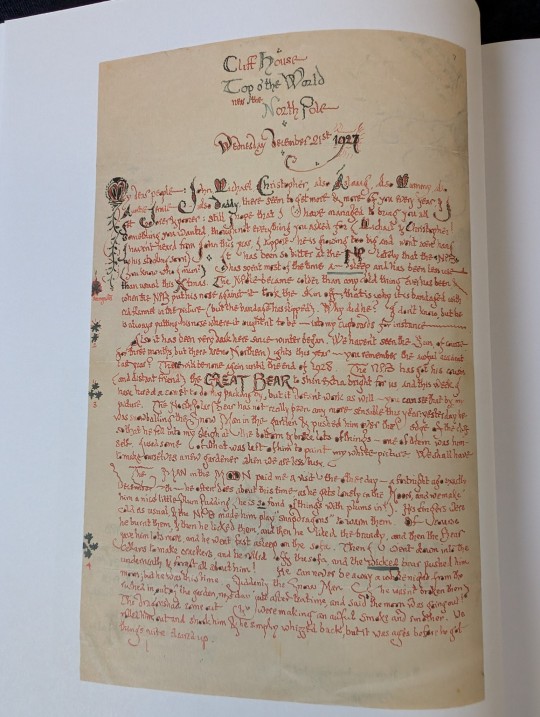 Cliff House
Top o' the World
near the
North Pole
Wednesday December 21st 1927
My dear people: John Michael Christopher, also Aunty Jennie, also Mummy
also Daddy, there seem to get more & more of you every year. I
get poorer & poorer: still I hope that I have managed to bring you all
something you wanted, though not everything you asked for Michael & Christopher!
(I haven't heard from John this year. I suppose he's growing too big and won't even hang
up his stocking soon)
It has been so bitter at the NP lately that the NPB
(you know who I mean!) has spent most of the time asleep and has been less use
than usual this Xmas. The NPole became colder than any cold thing ever has been
when the NPB put his nose against it — it took the skin off: that is why it is bandaged with
red flannel in the picture (but the bandage has slipped). Why did he? I don't know, but he
is always putting his nose where it oughtn't to be — into my cupboards for instance
Also it has been very dark here since winter began. We haven't seen the Sun of course
for three months but there are no Northern Lights this year — you remember the awful accident
last year? There will be none again until the end of 1928. The NPB has got his cousin
(and distant friend) the GREAT BEAR to shine extra bright for us, and this week I
have hired a comet to do my packing by, but it doesn't work as well — you can see that by my
picture. The North Polar Bear has not really been any more sensible this year: yesterday he
was snowballing the Snow Man in the garden & pushed him over the edge of the cliff
so that he fell into my sleigh at the bottom & broke lots of things — one of them was him-
self. I used some of what was left of him to paint my white picture. We shall have
to make ourselves a new gardener when we are less busy.
The MAN in the MOON paid me a visit the other day — a fortnight ago exactly
he often does about this time, as he gets lonely in the Moon, and we make
him a nice little Plum Pudding (he is so fond of things with plums in!). His fingers were
cold as usual & the NPB made him play 'snapdragons' to warm them. Of course
he burnt them, & then he licked them, and then he liked the brandy, and then the Bear
gave him lots more, and he went fast asleep on the sofa. Then I went down into the
cellars to make crackers and he rolled off the sofa, and the wicked bear pushed him
underneath & forgot all about him! He can never be away a whole night from the
moon; but he was this time. Suddenly the Snow Man (he wasn't broken then)
rushed in out of the garden, next day just after teatime, and said the moon was going out!
The dragons had come out & were making an awful smoke and smother. We
rolled him out and shook him & he simply whizzed back, but it was ages before he got
things quite cleared up.